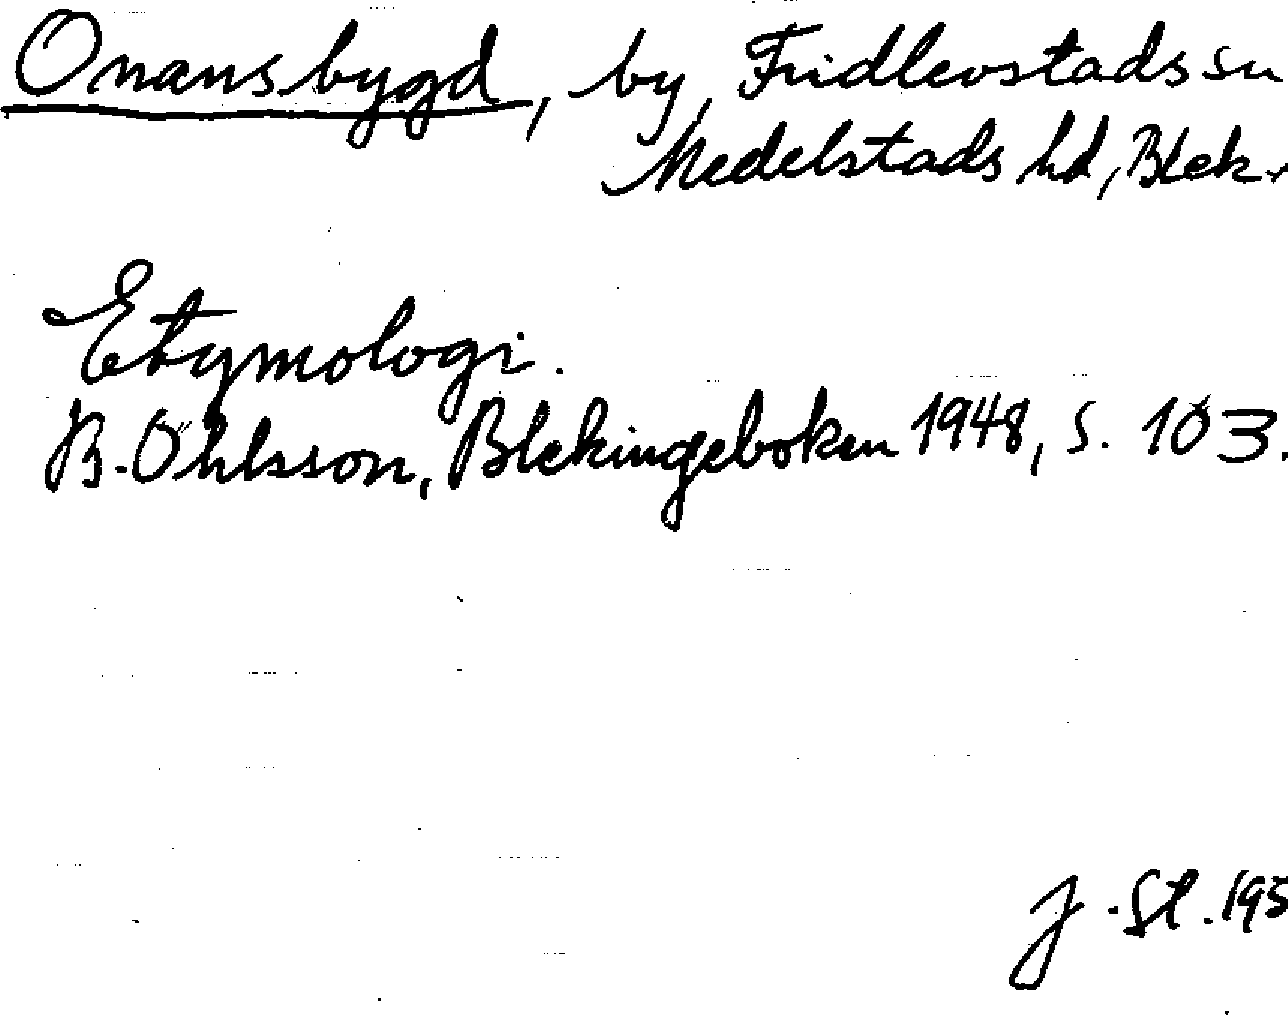 Onansbygd, by, Fridlevstads sn
Medelstads hd, Blek.
Etymologi.
B. Öhlsson, Blekingeboken 1948, s. 103.
J. St. 195